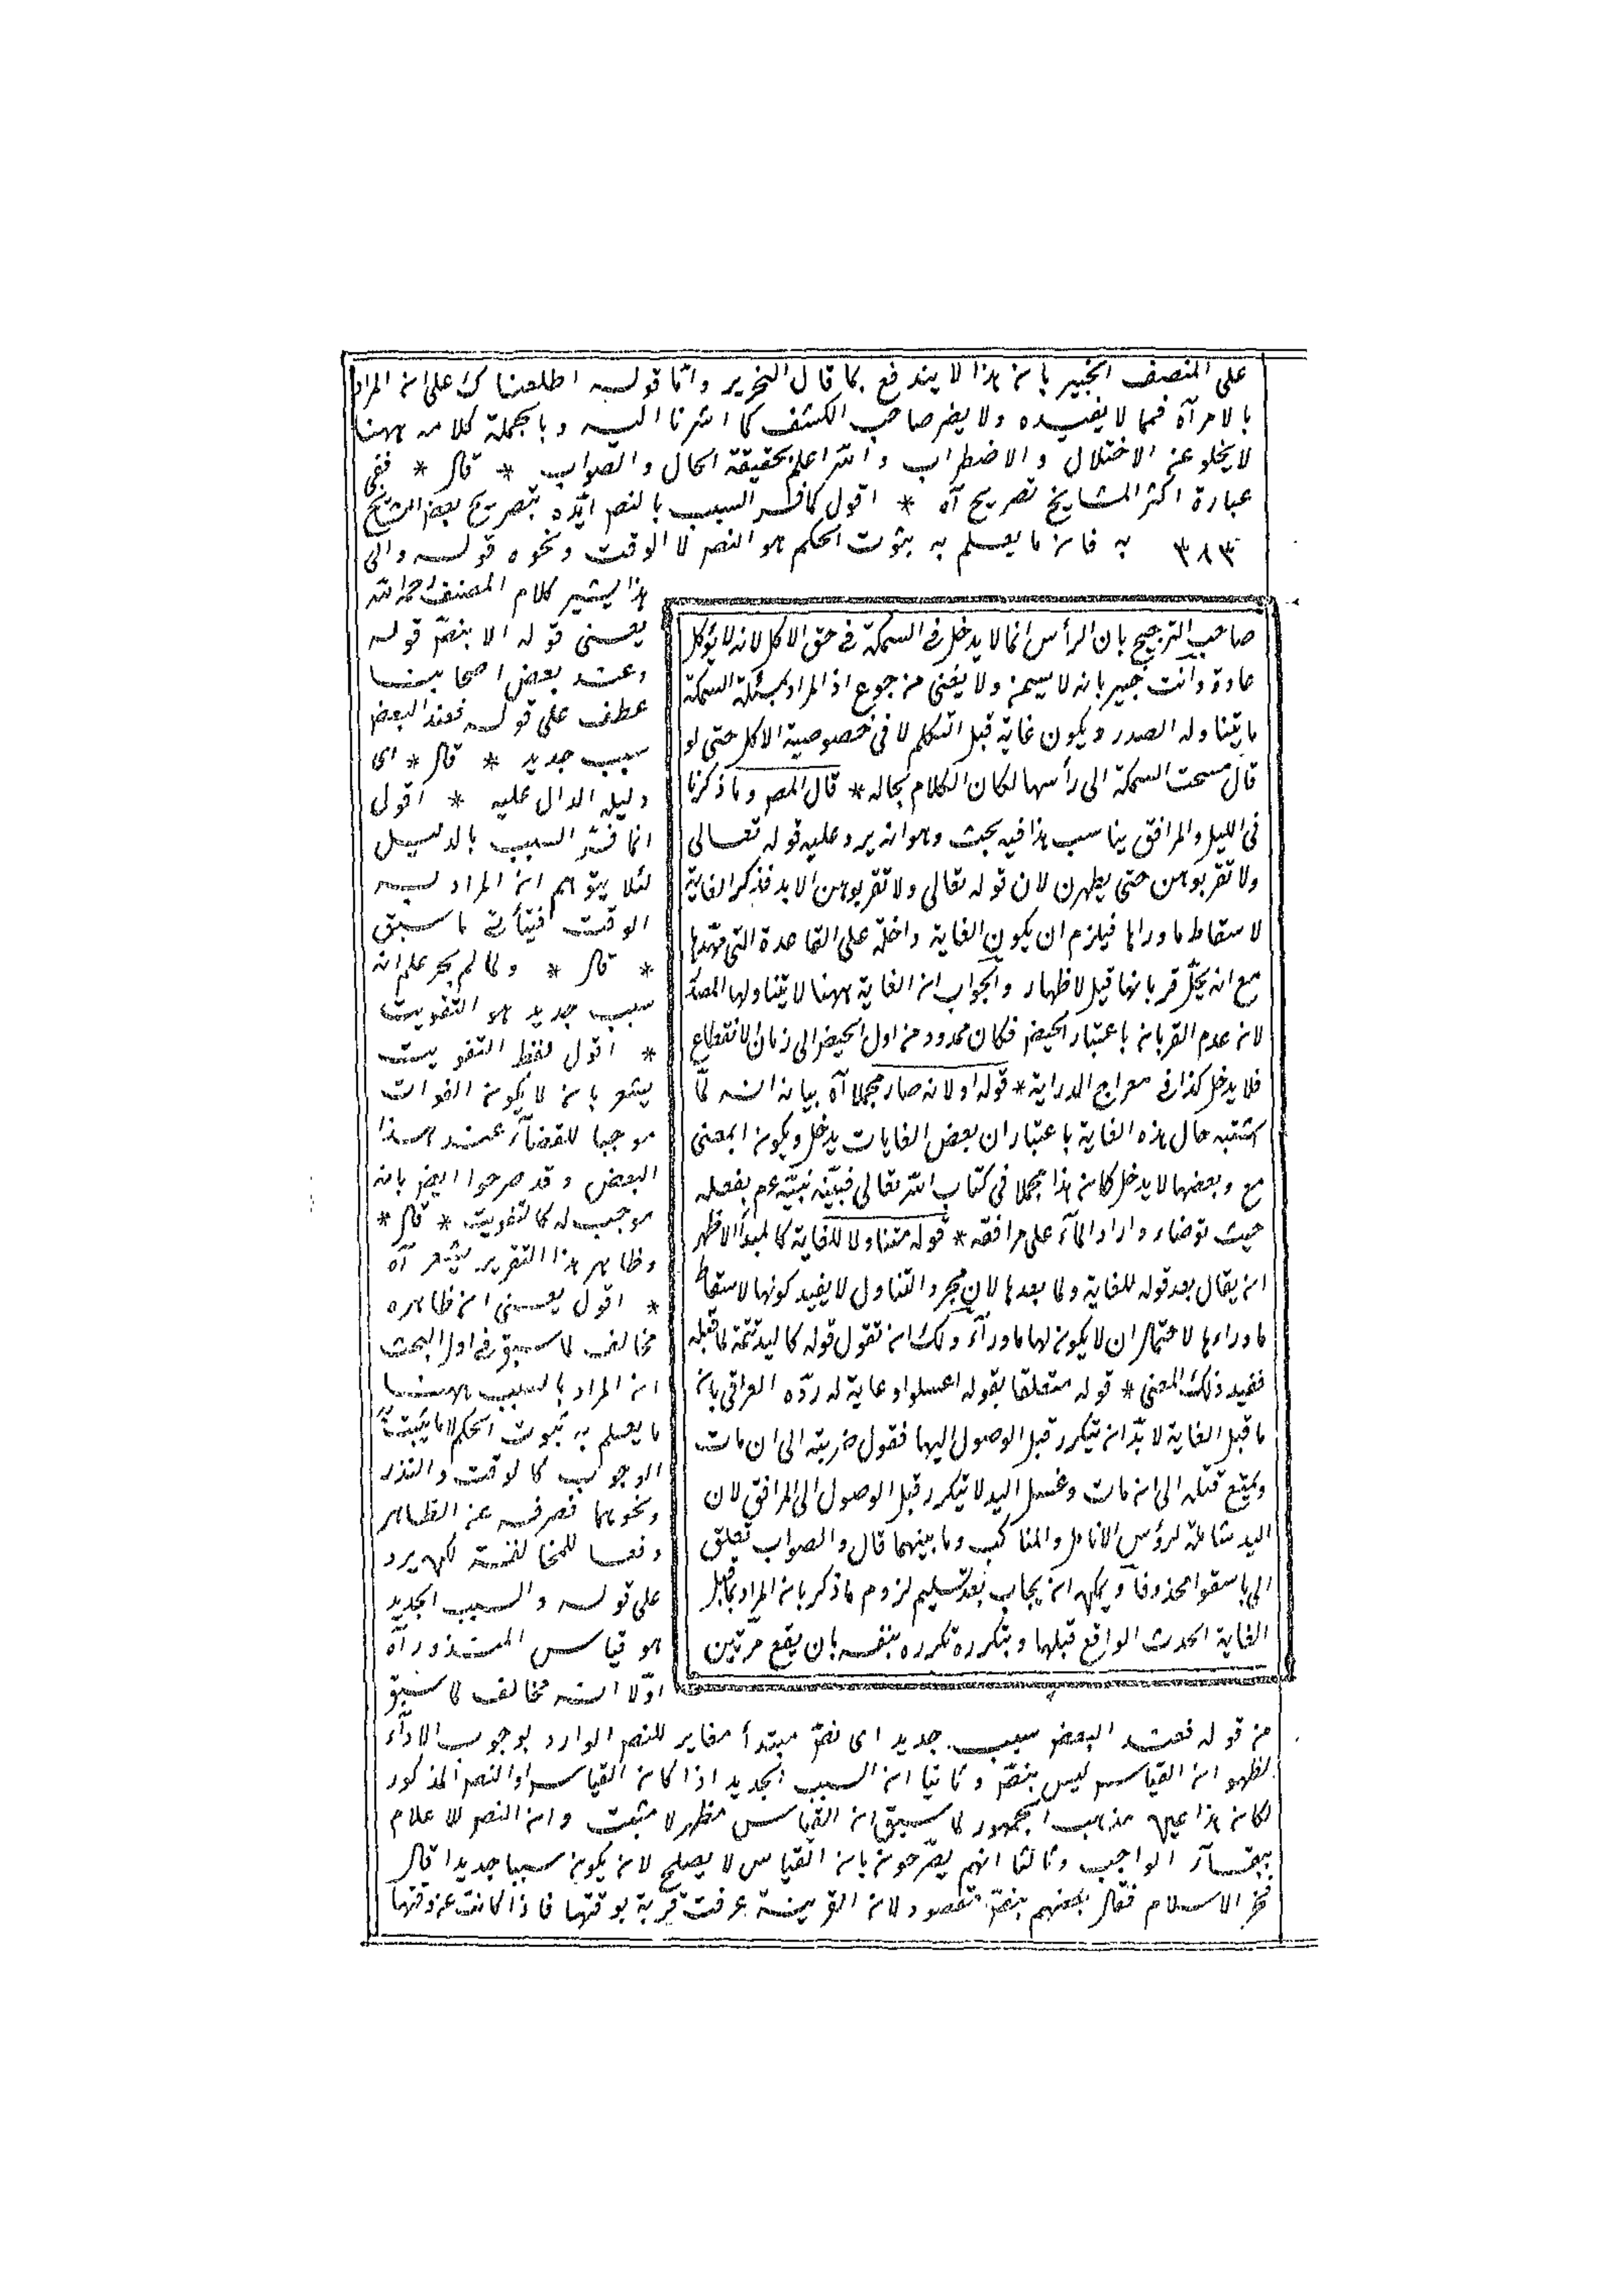 على المنصف الخبير بان هذا لا يندفع بما قال النحرير وامّا قوله اطلعناك على ان المراد
بالامر آه فمما لا يفيده ولا يضر صاحب الكشف كما اشرنا اليه وبالجملة كلامه ههنا
لا يخلو عن الاختلال والاضطراب والله اعلم بحقيقة الحال والصواب * قال * ففى
عبارة اكثر المشايخ تصريح آه * اقول كما فسر السبب بالنص ايّده بتصريح بعض المشايخ
٣٨٣ به فان ما يعلم به ثبوت الحكم هو النص لا الوقت ونحوه قوله والى
هذا يشير كلام المصنف رحمه الله
يعنى قوله الا بنصّ قوله
وعند بعض اصحابنا
عطف على قوله فعند البعض
سبب جديد * قال * اى
دليله الدال عليه * اقول
انما فسّر السبب بالدليل
لئلا يتوهم ان المراد به
الوقت فيتأتى ما سبق
* قال * ولما لم يجر علم انه
سبب جديد هو التفويت
* اقول لفظ التفويت
يشعر بان لا يكون الفوات
موجبا للقضآء عند هذا
البعض وقد صرحوا ايض بانه
موجب له كالتفويت * قال *
وظاهر هذا التقرير يشعر آه
* اقول يعنى ان ظاهره
مخالف لما سبق فى اول البحث
ان المراد بالسبب ههنا
ما يعلم به ثبوت الحكم لا ما يثبت به
الوجوب كالوقت والنذر
ونحوهما فصرفه عن الظاهر
دفعا للمخالفة لكن يرد
على قوله والسبب الجديد
هو قياس المنذور آه
اوّلا انه مخالف لما سبق
من قوله فعند البعض سبب جديد اى نصّ مبتدأ مغاير للنص الوارد بوجوب الادآء
لظهور ان القياس ليس بنصّ وثانيا ان السبب الجديد اذا كان القياس او النص المذكور
لكان هذا عين مذهب الجمهور لما سبق ان القياس مظهر لا مثبت وان النص للاعلام
ببقآء الواجب وثالثا انهم يصّرحون بان القياس لا يصلح لان يكون سببا جديدا قال
فخر الاسلام فقال بعضهم بنصّ مقصود لان القربة عرفت قربة بوقتها فاذا كانت عن وقتها
صاحب الترجيح بان الرأس انما لا يدخل فى السمكة فى حق الاكل لانه لا يؤكل
عادة وانت خبير بانه لا يسمن ولا يغنى من جوع اذ المراد بمسئلة السمكة
ما يتناوله الصدر ويكون غاية قبل التكلم لا فى خصوصية الاكل حتى لو
قال مسحت السمكة الى رأسها لكان الكلام بحاله * قال المص وما ذكرنا
فى الليل والمرافق يناسب هذا فيه بحث وهو انه يرد عليه قوله تعالى
ولا تقربوهن حتى يطهرن لان قوله تعالى ولا تقربوهن للابد فذكر الغاية
لاسقاط ما وراها فيلزم ان يكون الغاية داخلة على القاعدة التى مهّدها
مع انه يحلّ قربانها قبل الاطهار والجواب ان الغاية ههنا لا يتناولها الصدر
لان عدم القربان باعتبار الحيض فكان محدودا من اول الحيض الى زمان الانقطاع
فلا يدخل كذا فى معراج الدراية * قوله او لانه صار مجملا آه بيانه انه لمّا
اشتبه حال هذه الغاية باعتبار ان بعض الغايات يدخل ويكون المعنى
مع وبعضها لا يدخل كان هذا مجملا فى كتاب الله تعالى فبيّنه نبيّه عم بفعله
حيث توضاء وادار المآء على مرافقه * قوله متناولا للغاية كاليد الاظهر
ان يقال بعد قوله للغاية ولما بعدها لان مجرد التناول لا يفيد كونها لاسقاط
ما وراءها لاحتمال ان لا يكون لها ماورآء ولك ان تقول قوله كاليد تتمة لما قبله
فيفيد ذلك المعنى * قوله متعلقا بقوله اغسلوا وغاية له ردّه العراقى بان
ما قبل الغاية لا بدّ ان يتكرر قبل الوصول اليها فقول ضربته الى ان مات
ويمتنع قتلته الى ان مات وغسل اليد لا يتكرر قبل الوصول الى المرافق لان
اليد شاملة لرؤس الانامل والمناكب وما بينهما قال والصواب تعلق
الى باسقطوا محذوفا ويمكن ان يجاب بعد تسليم لزوم ما ذكر بان المراد بما قبل
الغاية الحدث الواقع قبلها وبتكرره تكرره بنفسه بان يقع مرّتين